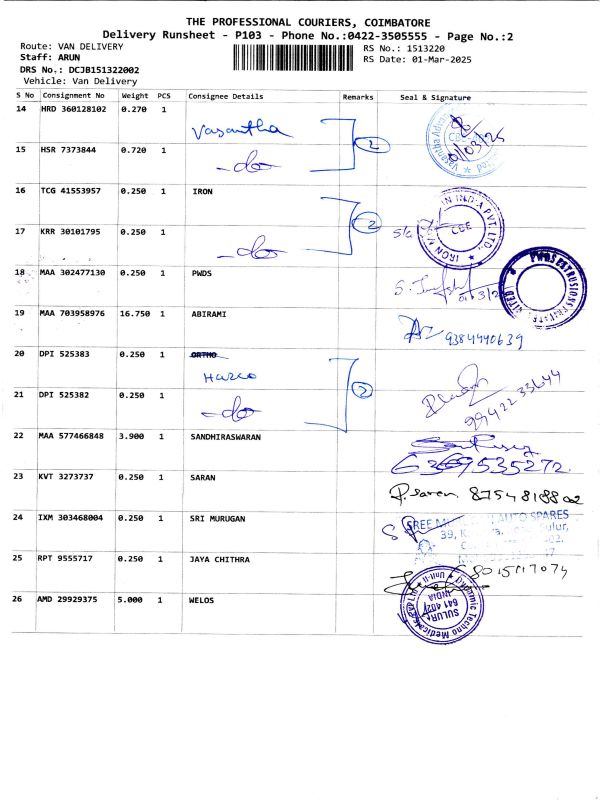 THE PROFESSIONAL COURIERS, COIMBATORE
Delivery Runsheet - P103 - Phone No.:0422-3505555 - Page No.:2
Route: VAN DELIVERY
RS No.: 1513220
Staff: ARUN
RS Date: 01-Mar-2025
DRS No.: DCJB151322002
Vehicle: Van Delivery
S No Consignment No Weight PCS Consignee Details Remarks Seal & Signature
14 HRD 360128102 0.270 1 Vasantha
01/03/25
15 HSR 7373844 0.720 1 -do- 2
16 TCG 41553957 0.250 1 IRON
17 KRR 30101795 0.250 1 -do- 2
IN INDIA PVT. LTD. CBE IRON
18 MAA 302477130 0.250 1 PWDS
19 MAA 703958976 16.750 1 ABIRAMI 9384440639
20 DPI 525383 0.250 1 ORTHO
Hazco
21 DPI 525382 0.250 1 -do- 2 9942233644
22 MAA 577466848 3.900 1 SANDHIRASWARAN 6369535272
23 KVT 3273737 0.250 1 SARAN P. Saran 8754818802
24 IXM 303468004 0.250 1 SRI MURUGAN
AUTO SPARES
25 RPT 9555717 0.250 1 JAYA CHITHRA 8015117074
26 AMD 29929375 5.000 1 WELOS
Dynamic Techno Medicals
Unit-II
SULUR
641 402
INDIA